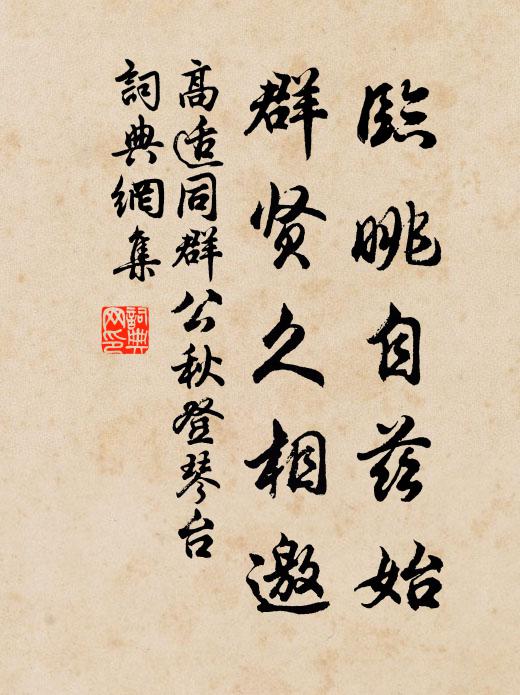 臨眺自茲始
群贤久相邀
高适同群公秋登琴台
詞典網集
詞典
网印